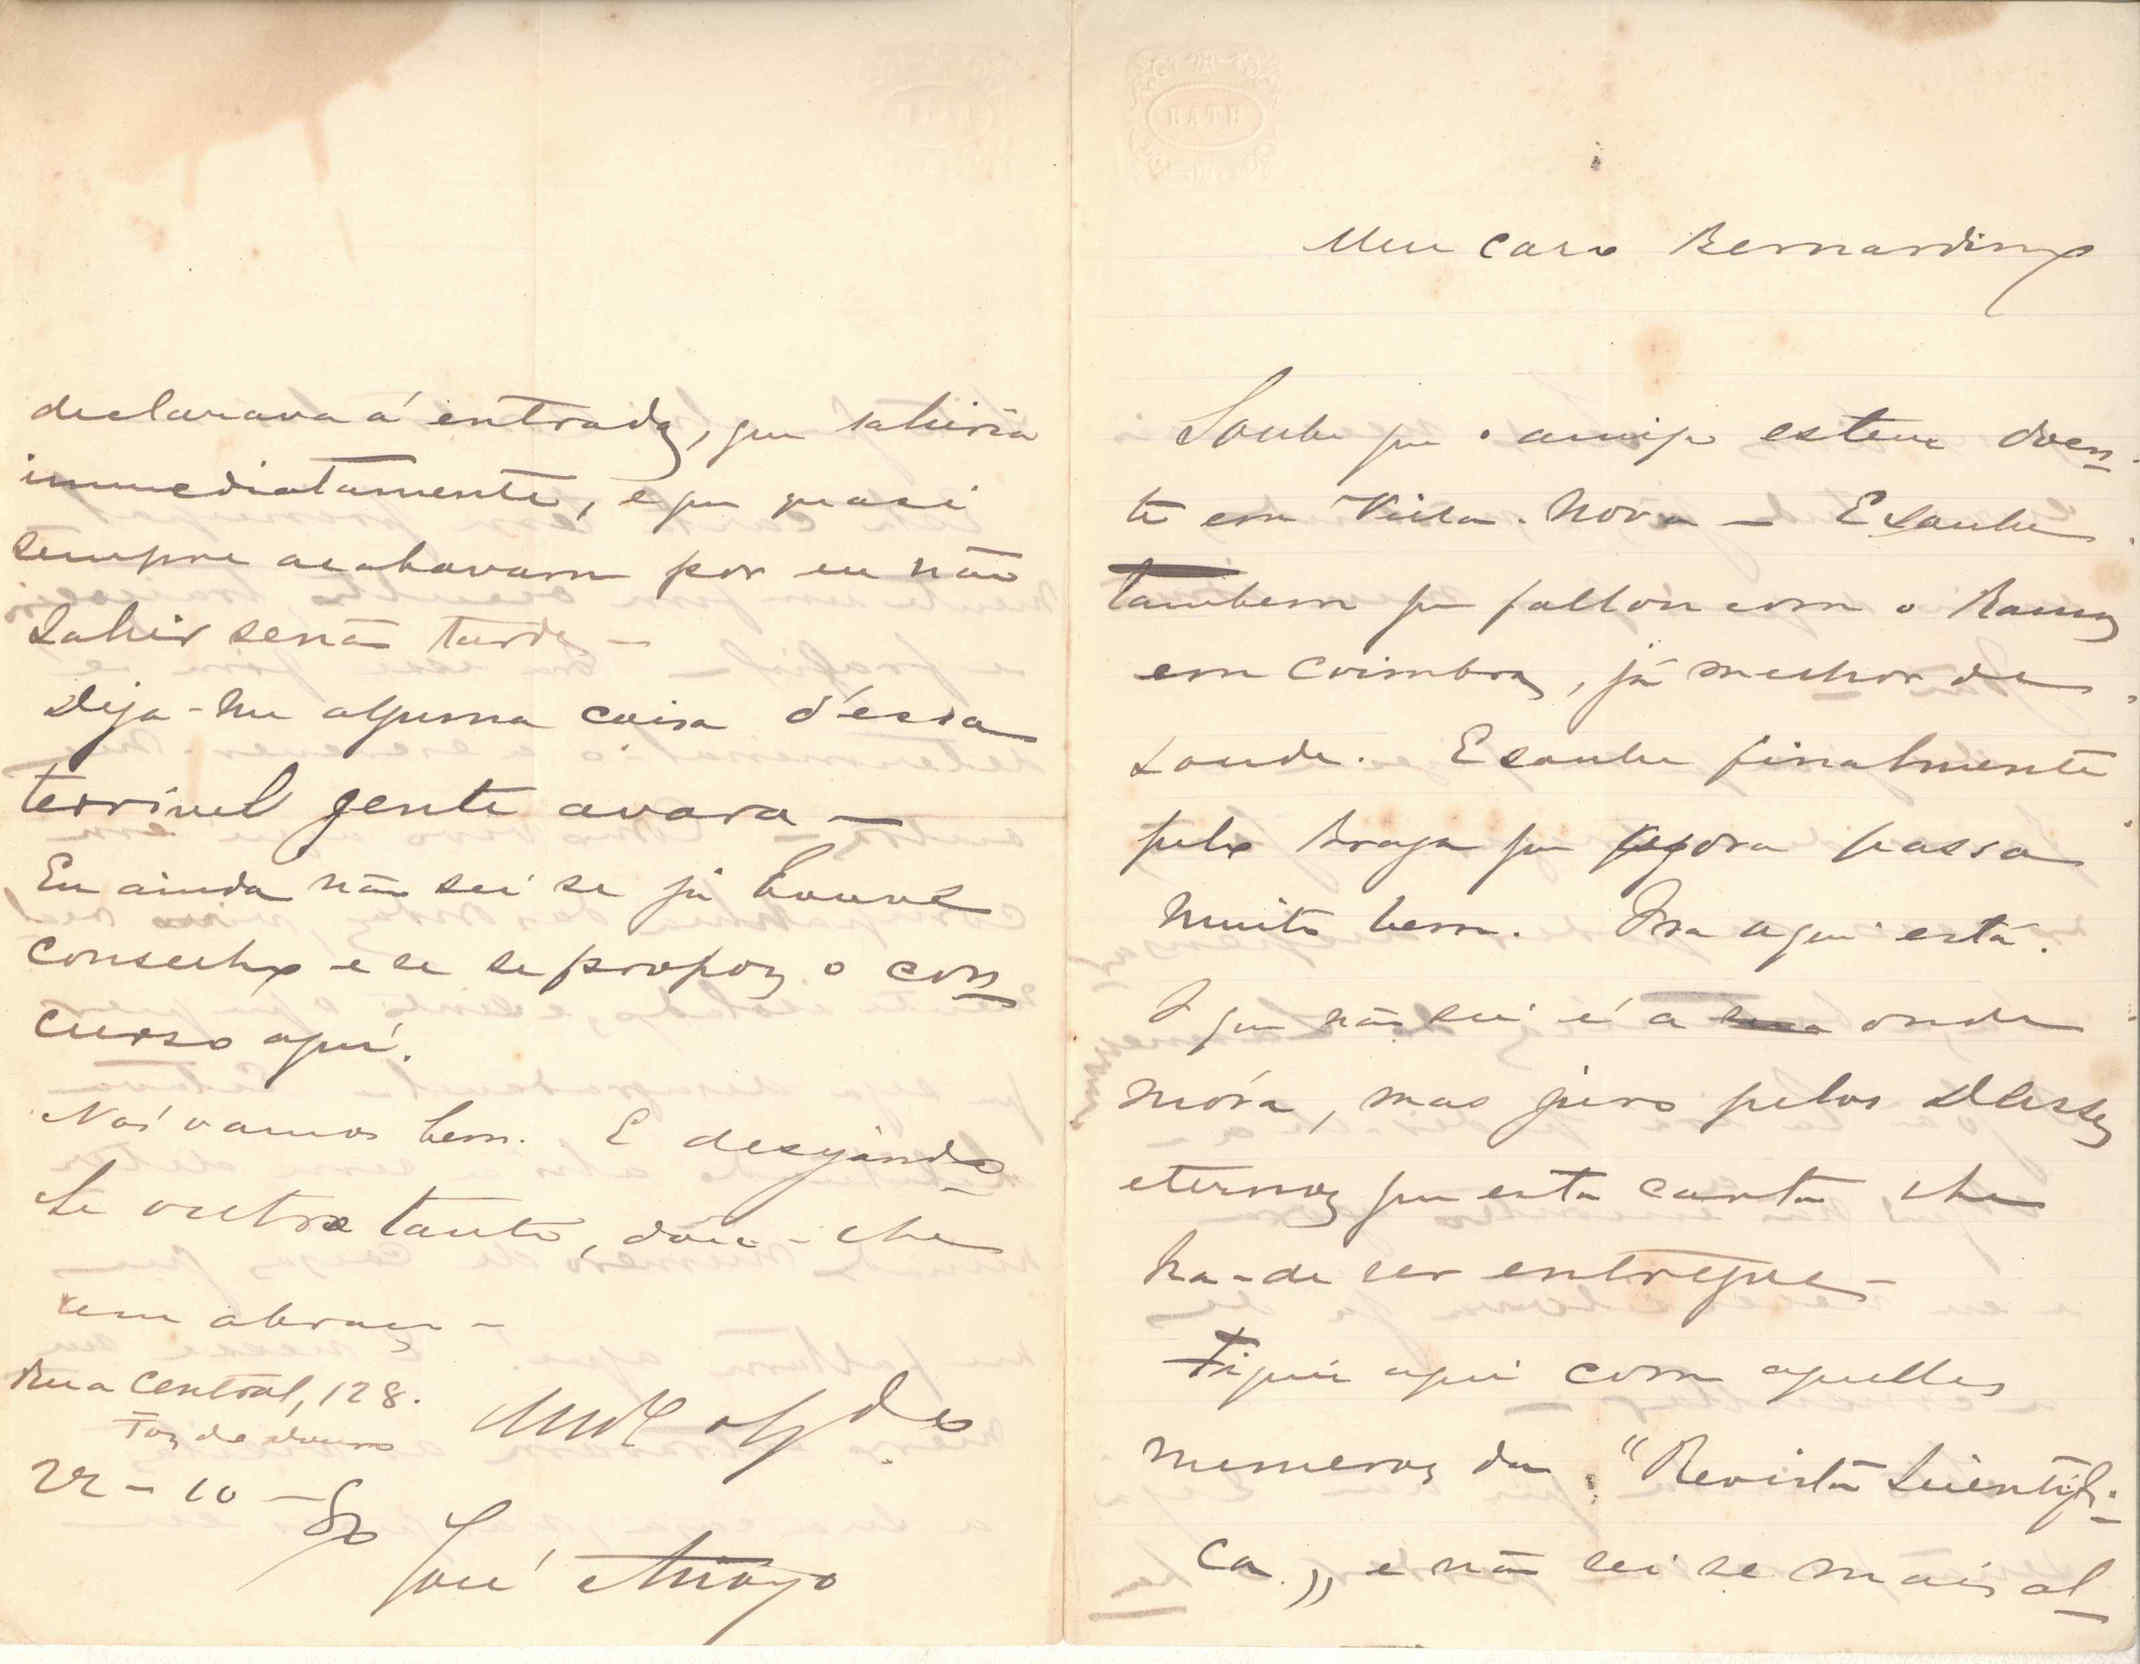 BATH
Meu caro Bernardino
Soube que o amigo esteve doen-
te em Villa-Nova — E soube
tambem que fallou com o Ramos
em Coimbra, já melhor de
saude. E soube finalmente
pelo Braga que agora passa
muito bem. Ora aqui está.
O que não sei é a rua onde
móra, mas juro pelos Deuses
eternos que esta carta lhe
ha-de ser entregue —
Fiquei aqui com aquelles
numeros da "Revista Scientifi-
ca„ e não sei se mais al-
declarava á entrada, que sahiria
immediatamente, e que quasi
sempre acabavam por eu não
sahir senão tarde —
Diga-me alguma coisa d'essa
terrivel gente avara —
Eu ainda não sei se já houve
conselho e se se propoz o con-
curso aqui.
Nós vamos bem. E desejando-
lhe outro tanto, dou-lhe
um abraço —
Rua Central, 128.
Foz do Douro
22-10-80
José Arroyo